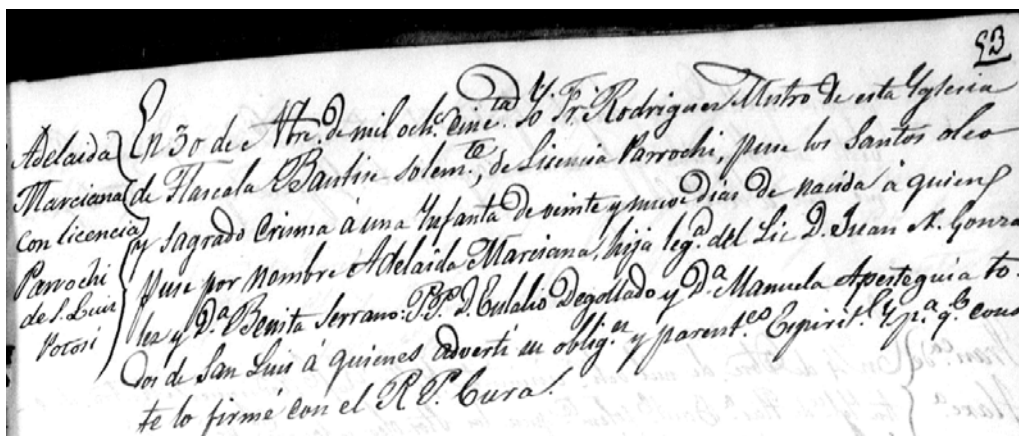 53
Adelaida
Marciana
con licencia
Parrochi
de S. Luis
Potosí
En 30 de Nbre. de mil och.s cinc.ta Yo Fr. Rodriguez Mntro de esta Yglesia
de Tlascala Bautisé solem.te, de Lisencia Parrochi, puse los Santos oleo
y sagrado Crisma á una Ynfanta de veinte y nueve dias de nacida á quien
puse por nombre Adelaida Marciana, hija leg.a del Lic D. Juan N. Gonza
les y D.a Benita Serrano: P.P. D. Eulalio Degollado y D.a Manuela Apesteguia to-
dos de San Luis á quienes advertí su oblig.n y parent.co Espirit.l Y p.a q.e cons
te lo firmé con el R. P. Cura.